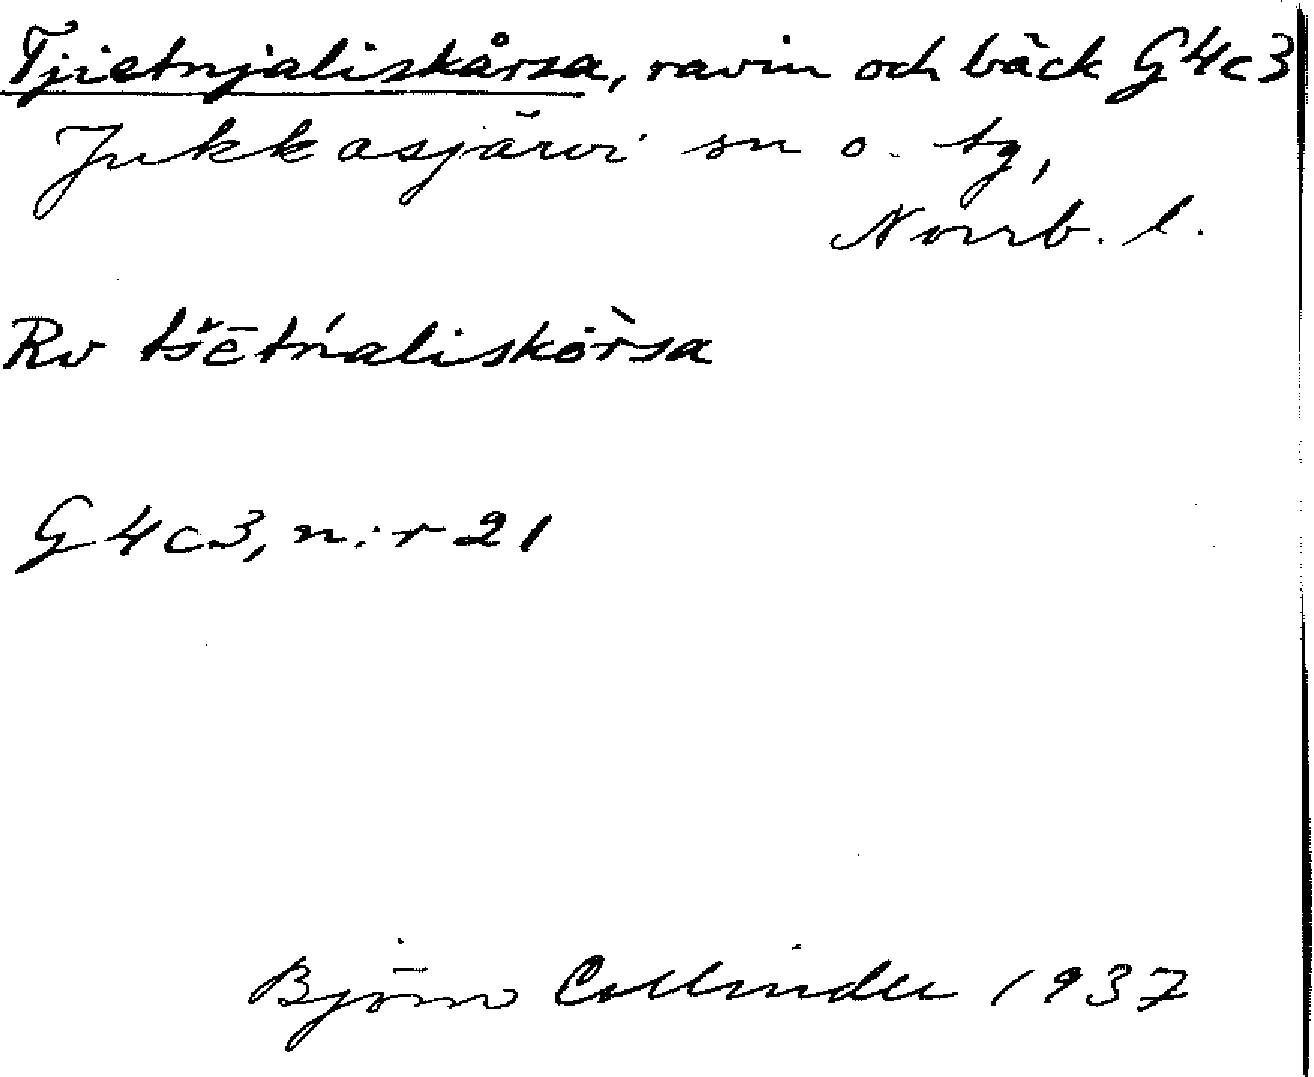 Tjietnjaliskårsa, ravin och bäck G4c3
Jukkasjärvi sn o. tg,
Norrb. l.
Rv tšētńaliskȯr̀sa
G4c3, n:r 21
Björn Collinder 1937